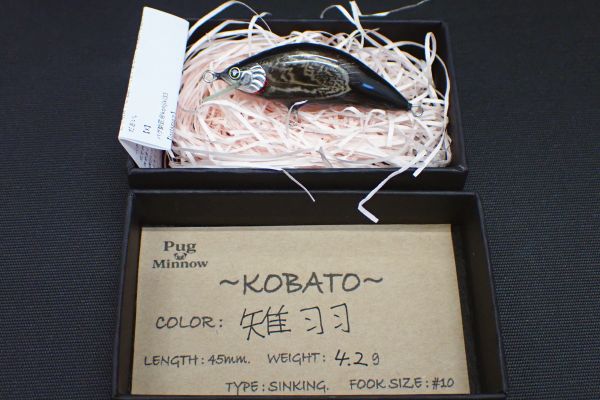 Pug
Minnow
~KOBATO~
COLOR: 雉羽
LENGTH: 45mm. WEIGHT: 4.2g
TYPE: SINKING. FOOK SIZE: #10